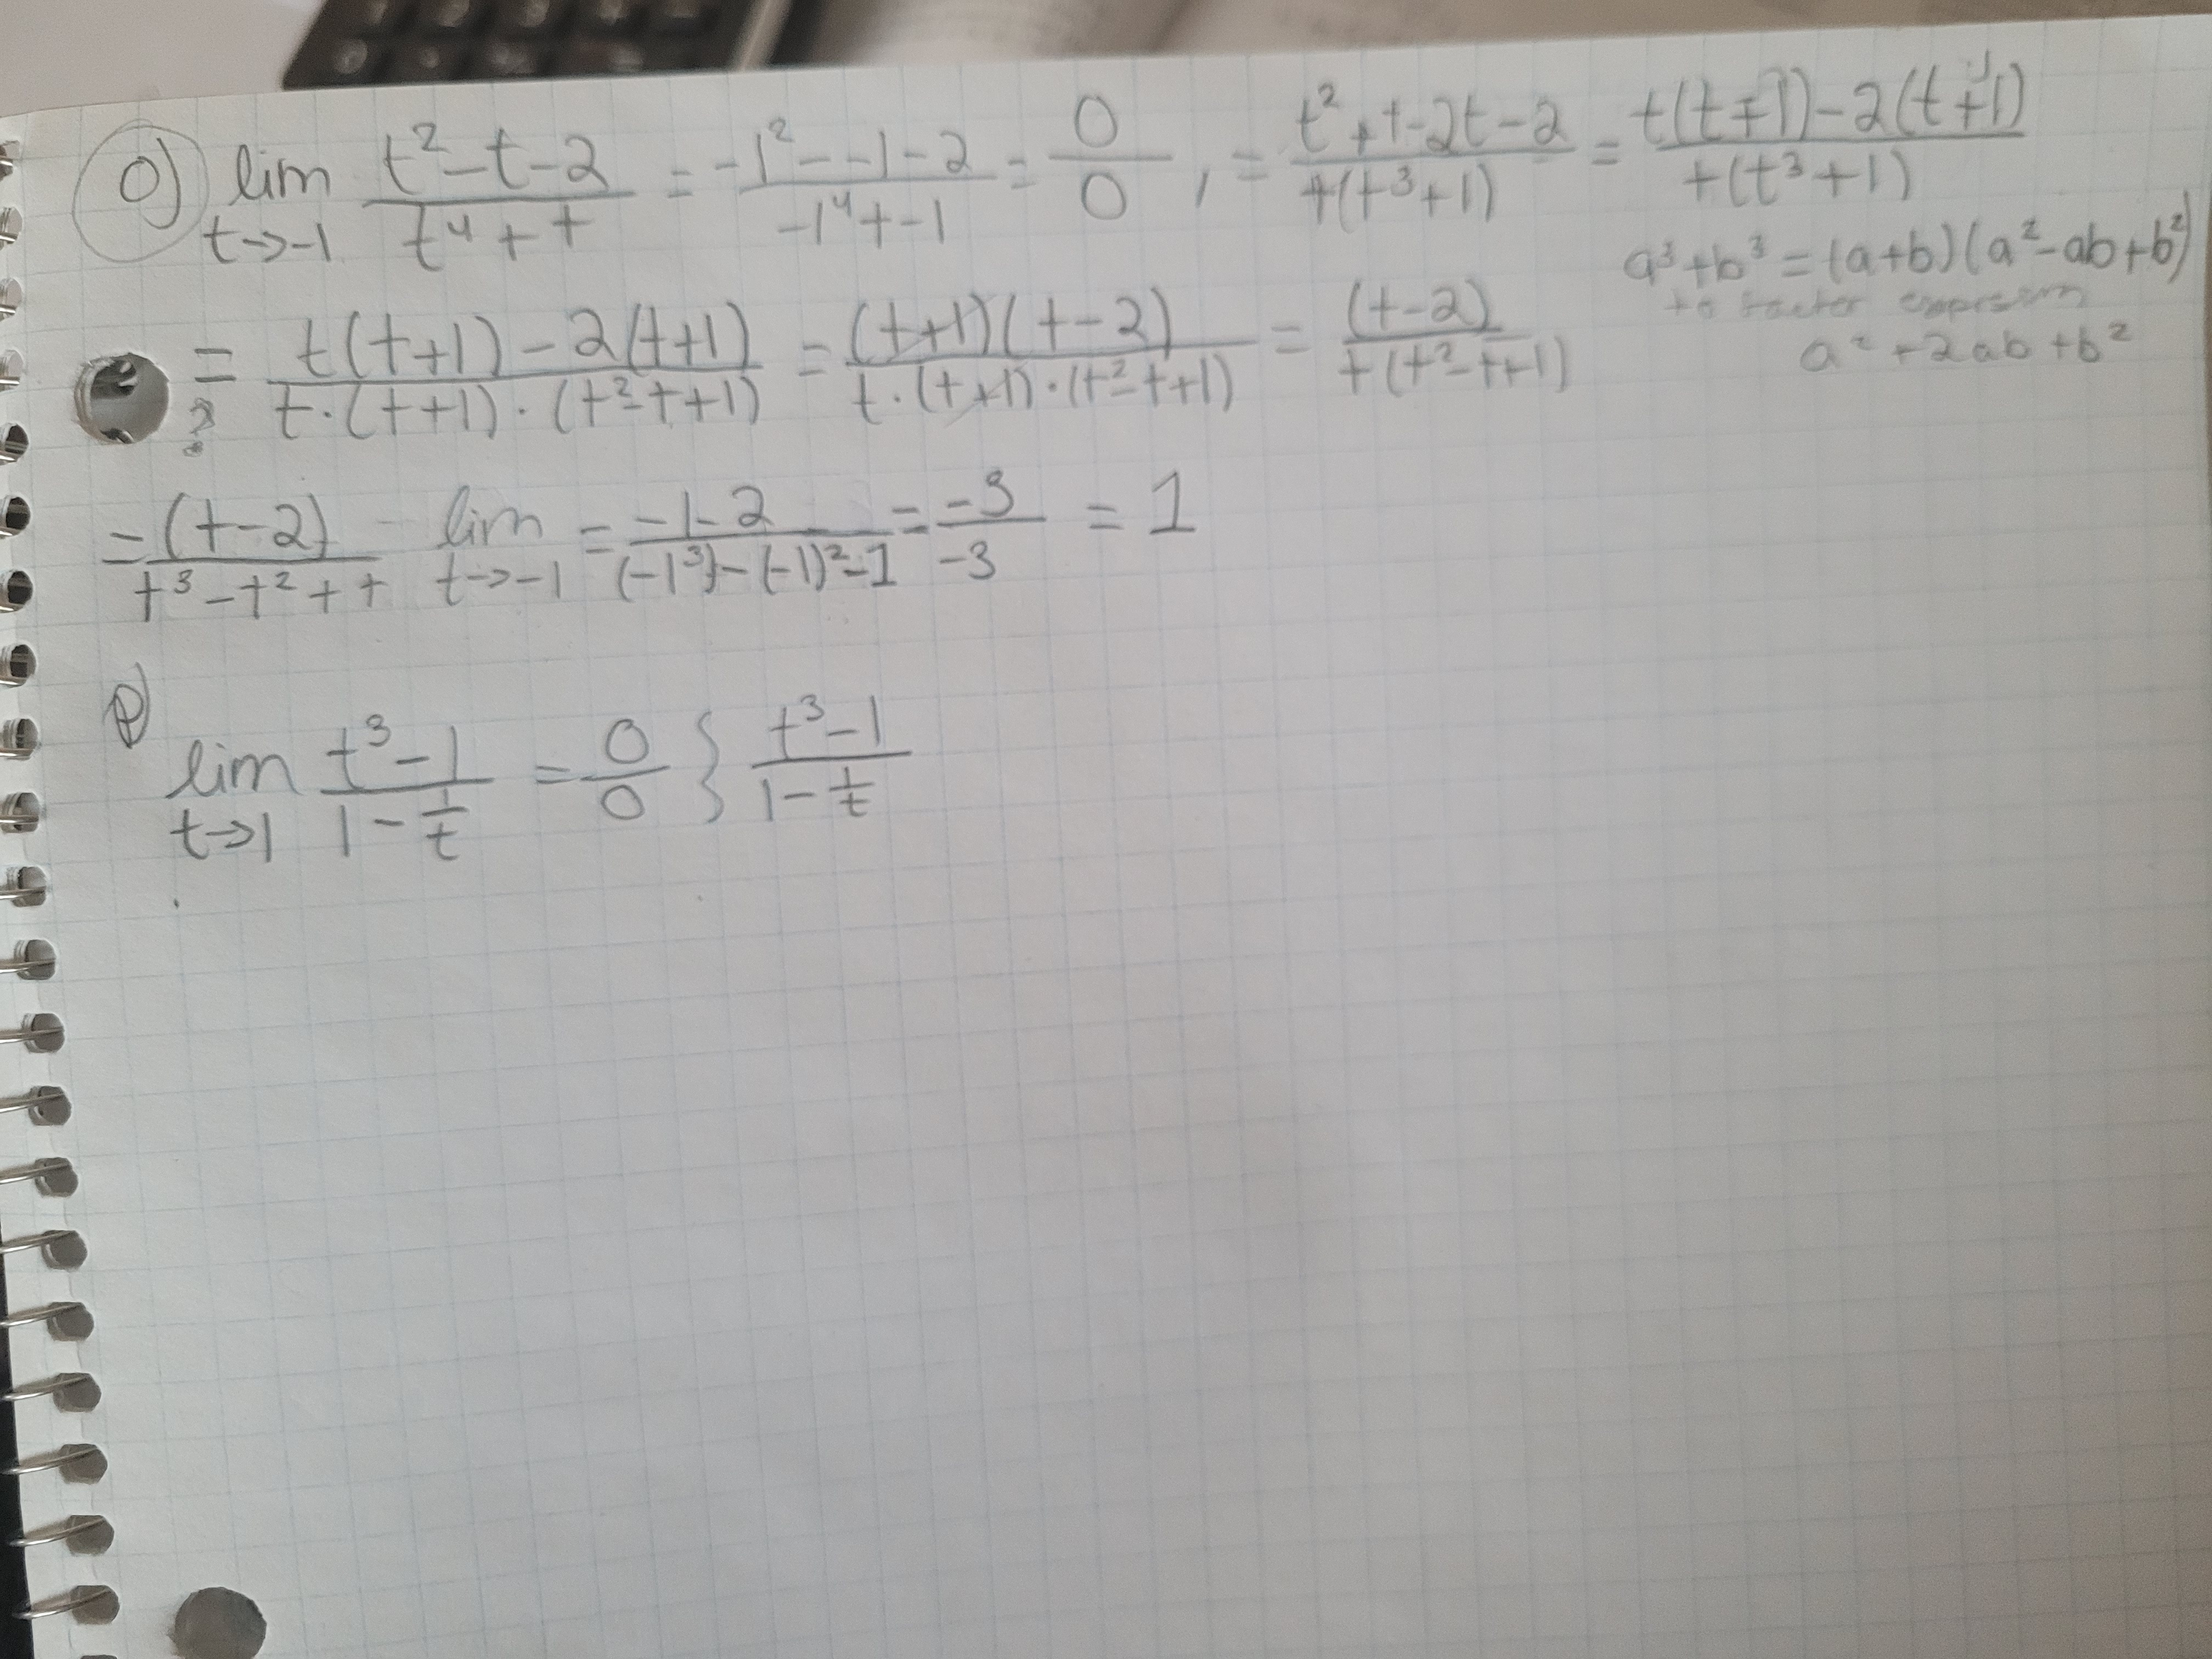 O) lim t²-t-2 / t⁴+t = -1²--1-2 / -1⁴+-1 = 0/0 , = t²+t-2t-2 / t(t³+1) = t(t+1)-2(t+1) / t(t³+1)
t→-1
a³+b³=(a+b)(a²-ab+b²)
to factor expression
a²+2ab+b²
= t(t+1)-2(t+1) / t·(t+1)·(t²-t+1) = (t+1)(t-2) / t·(t+1)·(t²-t+1) = (t-2) / t(t²-t+1)
?
= (t-2) / t³-t²+t - lim t→-1 = -1-2 / (-1³)-(-1)²-1 = -3 / -3 = 1
P)
lim t³-1 / 1-1/t = 0/0 } t³-1 / 1-1/t
t→1